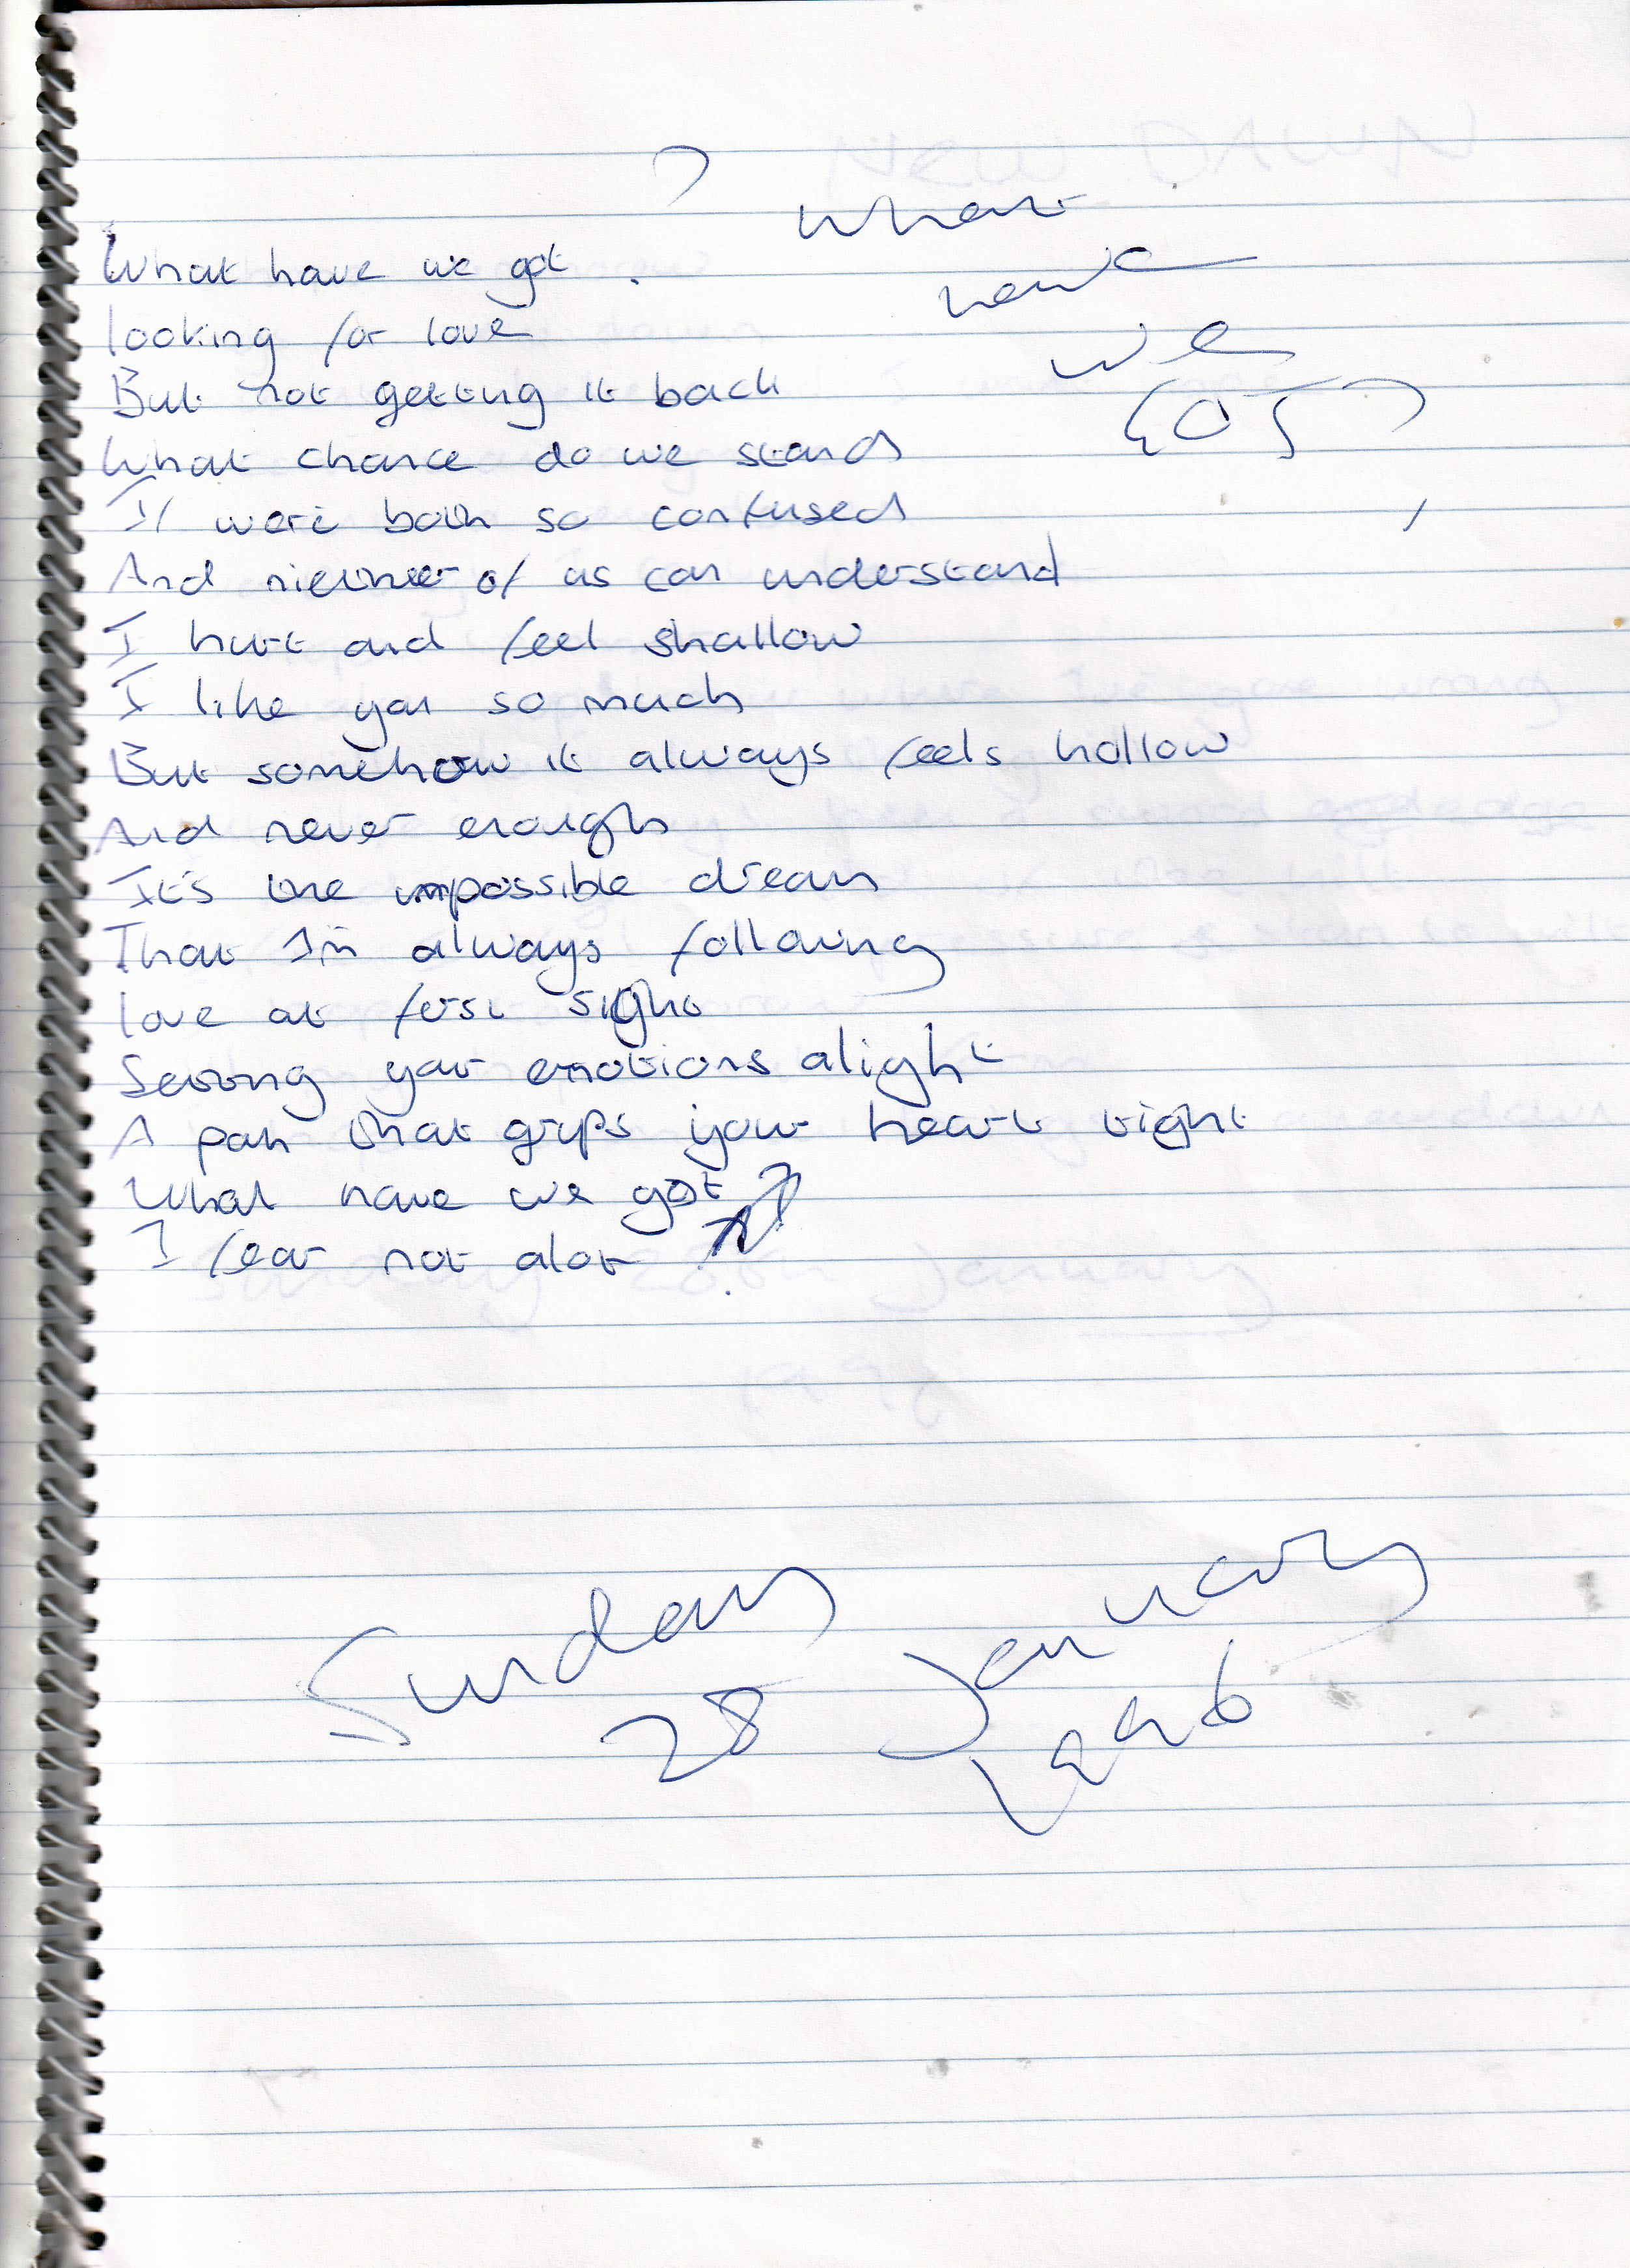 What
have
we
GOT?
What have we got?
looking for love
But not getting it back
What chance do we stand
If we're both so confused
And niether of us can understand
I hurt and feel shallow
I like you so much
But somehow it always feels hollow
And never enough
It's the impossible dream
That I'm always following
love at first sight
Setting your emotions alight
A pain that grips your heart tight
What have we got?
I fear not alot
Sunday
28 January
1996